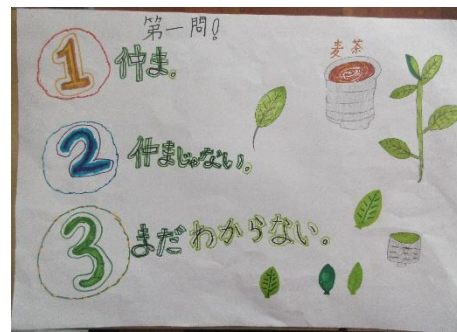 第一問!
1 仲ま。
麦茶
2 仲まじゃない。
3 まだわからない。